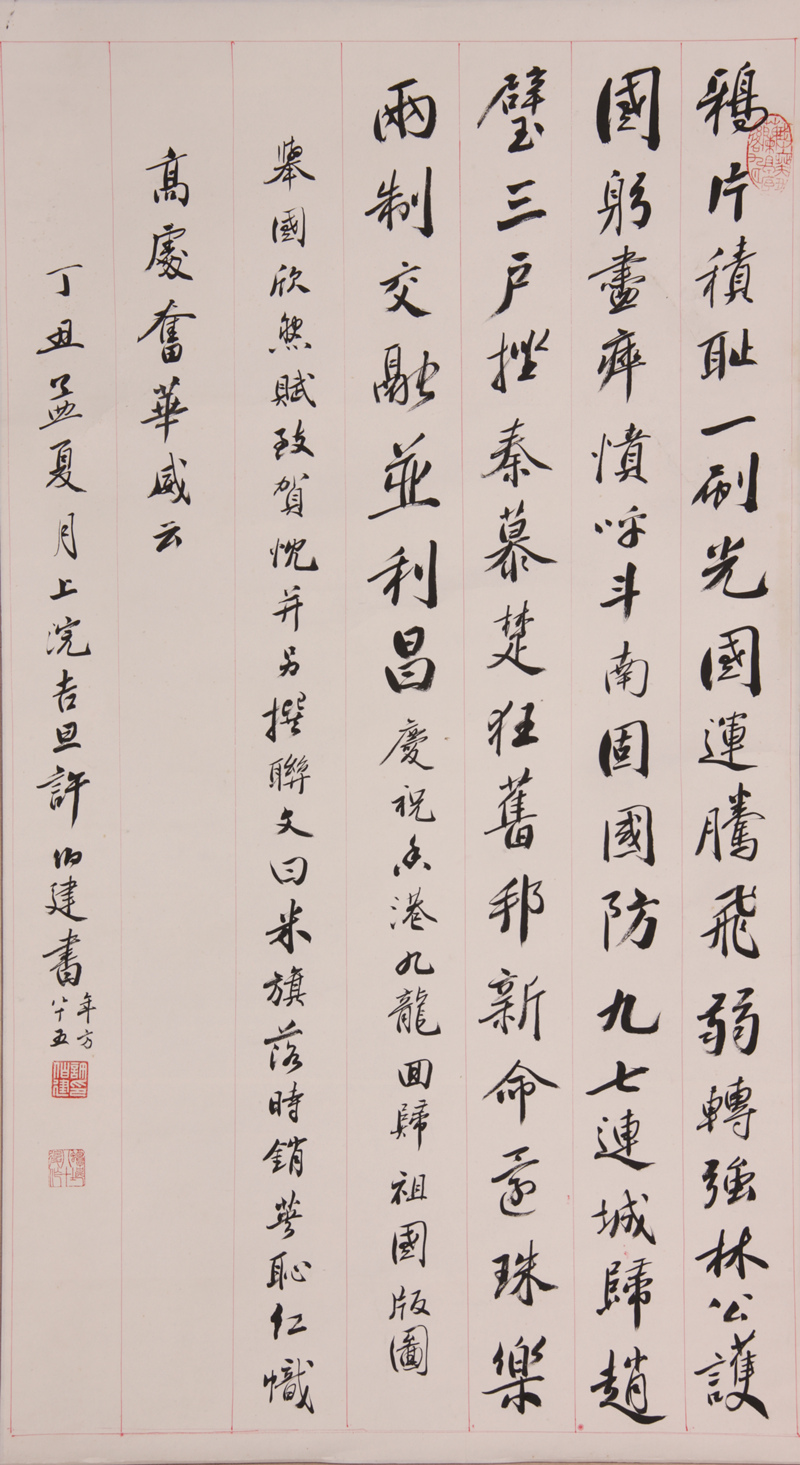 鴉片積耻一刷光國運騰飛弱轉強林公護
國躬盡瘁憤呼斗南固國防九七連城歸趙
璧三戶挫秦慕楚狂舊邦新命還珠樂
兩制交融並利昌慶祝香港九龍回歸祖國版圖
舉國欣然賦致賀忱并另撰聯文曰米旗落時銷萼恥仁幟
高處奮華威云
丁丑孟夏月上浣吉旦許伯建書
年方
八十五
許氏伯建